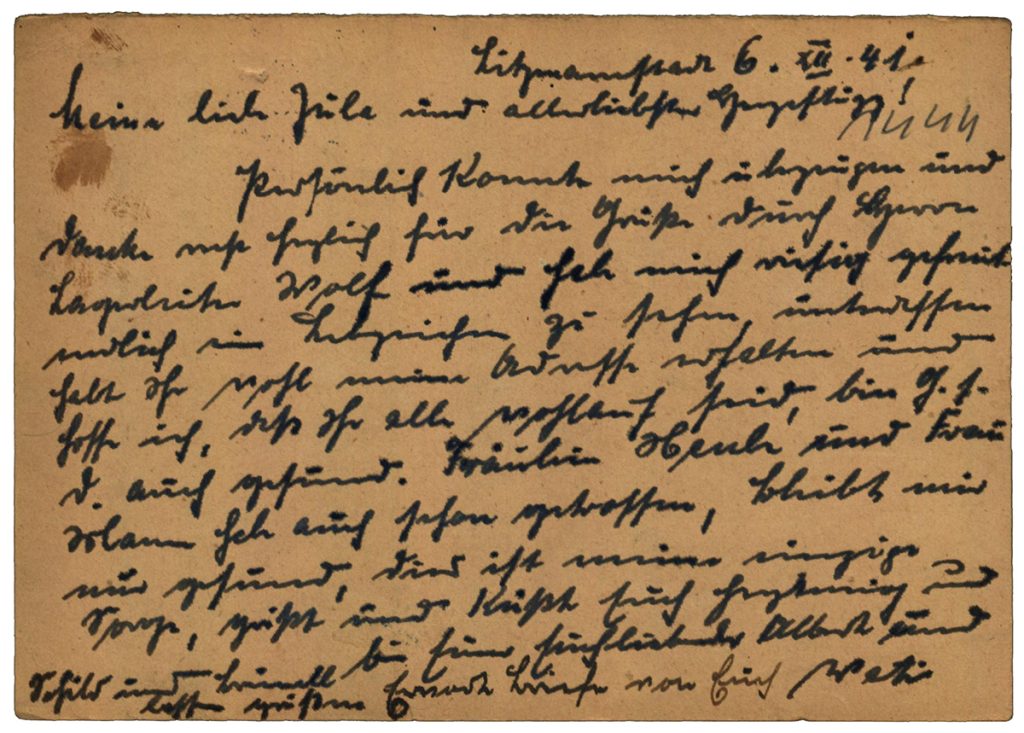 Litzmannstadt 6. XII. 41.
Meine liebe Jule und allerliebster Herzpflugz!
Persönlich konnte mich überzeugen und
danke recht herzlich für die Grüße durch Herrn
Lagerleiter Wolf und habe mich riesig gefreut
endlich ein Lebzeichen zu sehen, unterdessen
habt Ihr wohl meine Adresse erhalten und
hoffe ich, daß Ihr alle wohlauf seid, bin G. s.
d. auch gesund. Fräulein und Frau
Mann hab auch schon getroffen, bleibt mir
nur gesund, dies ist meine einzige
Sorge, grüßt und küßt Euch herzinnig
Euer Euchliebender Albert und
Schild und lassen grüßen Erwarte Briefe von Euch Vati